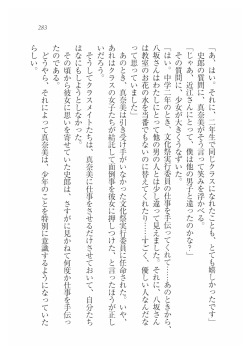 283
「あ、はい。それに、二年生で同じクラスになれて、とても嬉しかったです」
史郎の質問に、真奈美がそう言って笑みを浮かべる。
「じゃあ、近江さんにとって、僕は他の男子と違ったのかな？」
その質問に、少女が大きくうなずいた。
「はい。中学二年のとき、文化祭実行委員の仕事を手伝ってくれて、あのときから、
八坂さんはわたしにとって他の男の人とは少し違って見えました。それに、八坂さん
は教室のお花の水を当番でもないのに替えてくれたり……すごく、優しい人なんだな
って思っていました」
あのとき、真奈美は引きを受け手がいなかった文化祭実行委員に任命された。いや、
あれはクラスの女子たちが結託して面倒事を彼女に押しつけた、と言ったほうが正し
いだろう。
そうしてクラスメイトたちは、真奈美に仕事をさせるだけさせておいて、自分たち
その頃から彼女に思いを寄せていた史郎は、さすがに見かねて何度か仕事を手伝っ
たのである。
どうやら、それによって真奈美は、少年のことを特別に意識するようになっていた
らしい。